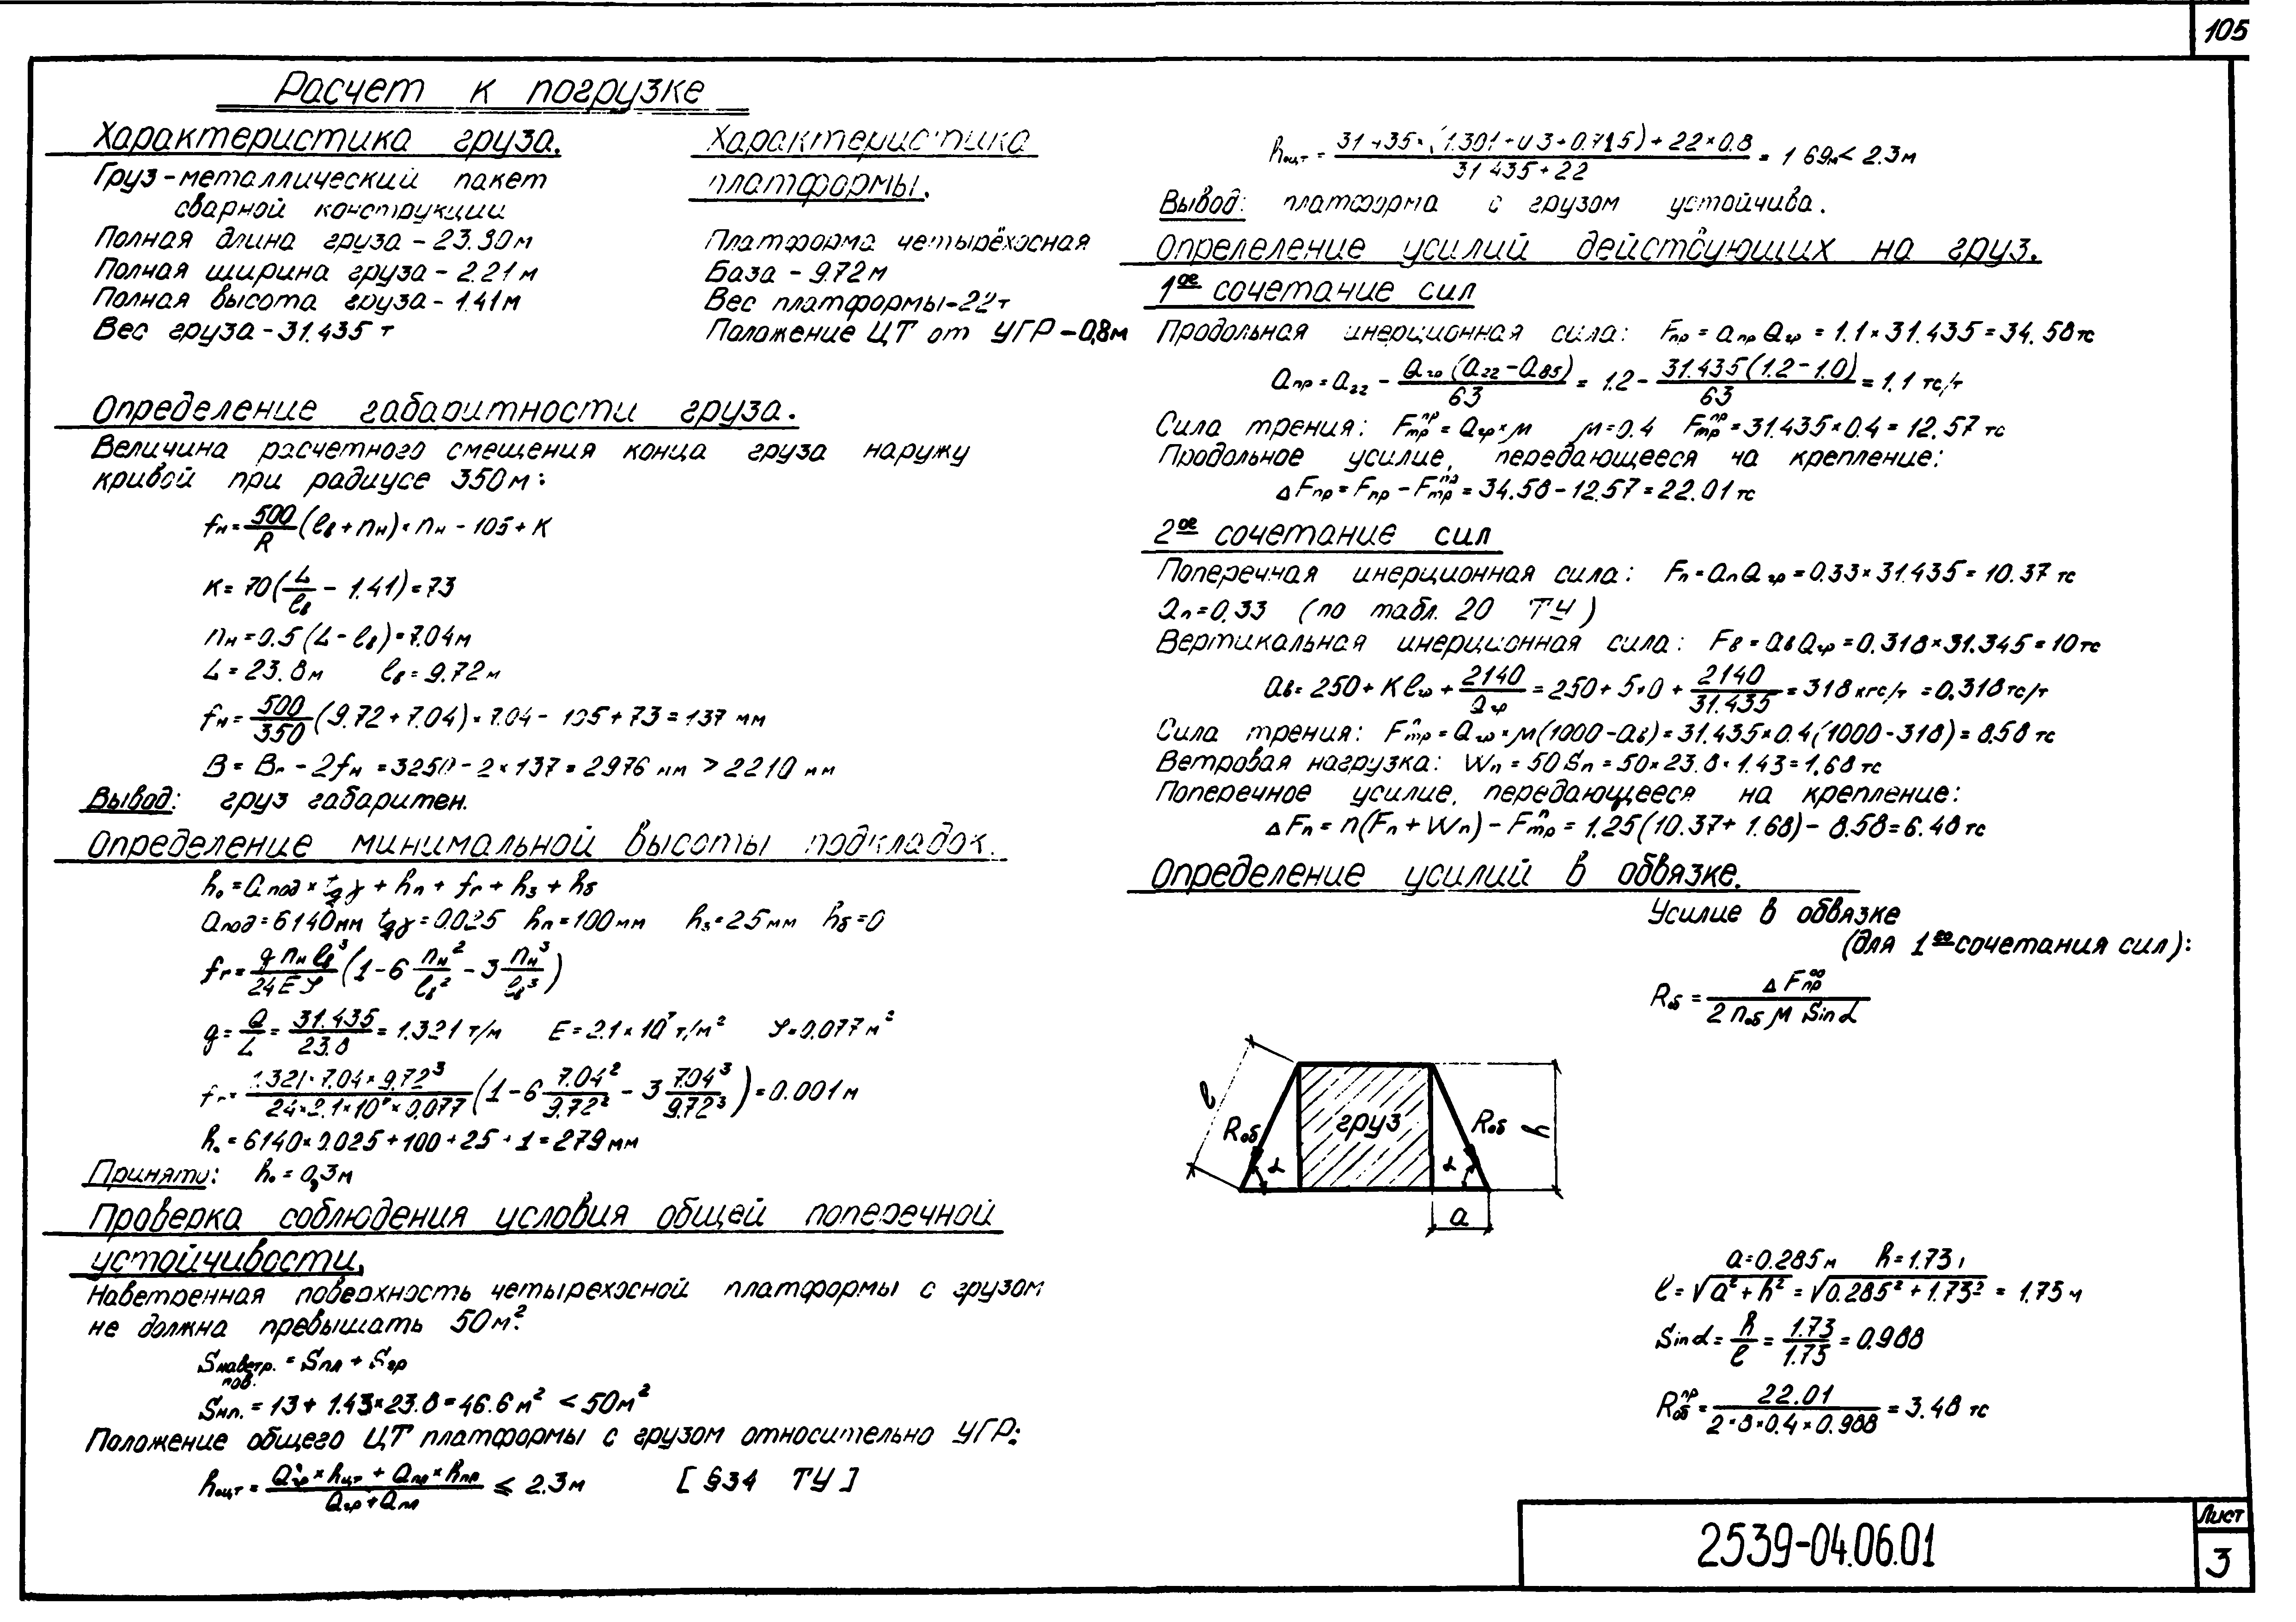 105
Расчет к погрузке
Характеристика груза.
Груз - металлический пакет
сварной конструкции
Полная длина груза - 23.80м
Полная ширина груза - 2.21м
Полная высота груза - 1.41м
Вес груза - 31.435 т
Характеристика
платформы.
Платформа четырёхосная
База - 9.72м
Вес платформы - 22т
Положение ЦТ от УГР - 0,8м
Определение габаритности груза.
Величина расчетного смещения конца груза наружу
кривой при радиусе 350м:
fн = 500/R (lв + nн) × nн - 105 + К
К = 70(L/lв - 1.41) = 73
nн = 0.5 (L - lв) = 7.04м
L = 23.8м lв = 9.72м
fн = 500/350 (9.72 + 7.04) × 7.04 - 105 + 73 = 137 мм
В = Вг - 2fн = 3250 - 2 × 137 = 2976 мм > 2210 мм
Вывод: груз габаритен.
Определение минимальной высоты подкладок.
h₀ = aпод × tgγ + hп + fг + hз + hб
aпод = 6140мм tgγ = 0.025 hп = 100мм hз = 25мм hб = 0
fг = q nн lв³/24EЈ (1 - 6 nн²/lв² - 3 nн³/lв³)
q = Q/L = 31.435/23.8 = 1.321 т/м E = 2.1 × 10⁷ т/м² Ј = 0.077 м²
fг = 1.321 × 7.04 × 9.72³/24 × 2.1 × 10⁷ × 0.077 (1 - 6 7.04²/9.72² - 3 7.04³/9.72³) = 0.001м
h₀ = 6140 × 0.025 + 100 + 25 + 1 = 279мм
Принято: h₀ = 0,3м
Проверка соблюдения условия общей поперечной
устойчивости.
Наветренная поверхность четырехосной платформы с грузом
не должна превышать 50м².
Sнаветр. пов. = Sпл + Sгр
Sнп. = 13 + 1.43 × 23.8 = 46.6м² < 50м²
Положение общего ЦТ платформы с грузом относительно УГР:
hоцт = Qгр × hцт + Qпр × hпр/Qгр + Qпл ≤ 2.3м [§34 ТУ]
hоцт = 31.435 × (1.301 + 0.3 + 0.715) + 22 × 0.8/31.435 + 22 = 1.69м < 2.3м
Вывод: платформа с грузом устойчива.
Определение усилий действующих на груз.
1ое сочетание сил
Продольная инерционная сила: Fпр = aпр Qгр = 1.1 × 31.435 = 34.58тс
aпр = a22 - Qгр (a22 - a85)/63 = 1.2 - 31.435(1.2 - 1.0)/63 = 1.1 тс/т
Сила трения: Fтрпр = Qгр × м м = 0.4 Fтрпр = 31.435 × 0.4 = 12.57 тс
Продольное усилие, передающееся на крепление:
ΔFпр = Fпр - Fтрпр = 34.58 - 12.57 = 22.01тс
2ое сочетание сил
Поперечная инерционная сила: Fп = aп Qгр = 0.33 × 31.435 = 10.37 тс
aп = 0.33 (по табл. 20 ТУ)
Вертикальная инерционная сила: Fв = aв Qгр = 0.318 × 31.345 = 10тс
aв = 250 + К lгр + 2140/Qгр = 250 + 5 × 0 + 2140/31.435 = 318 кгс/т = 0.318тс/т
Сила трения: Fтрп = Qгр × м(1000 - aв) = 31.435 × 0.4(1000 - 318) = 8.58 тс
Ветровая нагрузка: Wп = 50 Sп = 50 × 23.8 × 1.43 = 1.68 тс
Поперечное усилие, передающееся на крепление:
ΔFп = n(Fп + Wп) - Fтрп = 1.25(10.37 + 1.68) - 8.58 = 6.48 тс
Определение усилий в обвязке.
Усилие в обвязке
(для 1го сочетания сил):
Rоб = ΔFпр/2 nоб м Sin α
l
Rоб
α
груз
Rоб
α
h
a
a = 0.285м h = 1.73
l = √a² + h² = √0.285² + 1.73² = 1.75м
Sin α = h/l = 1.73/1.75 = 0.988
Rобпр = 22.01/2 × 8 × 0.4 × 0.988 = 3.48 тс
2539-04.06.01
Лист
3